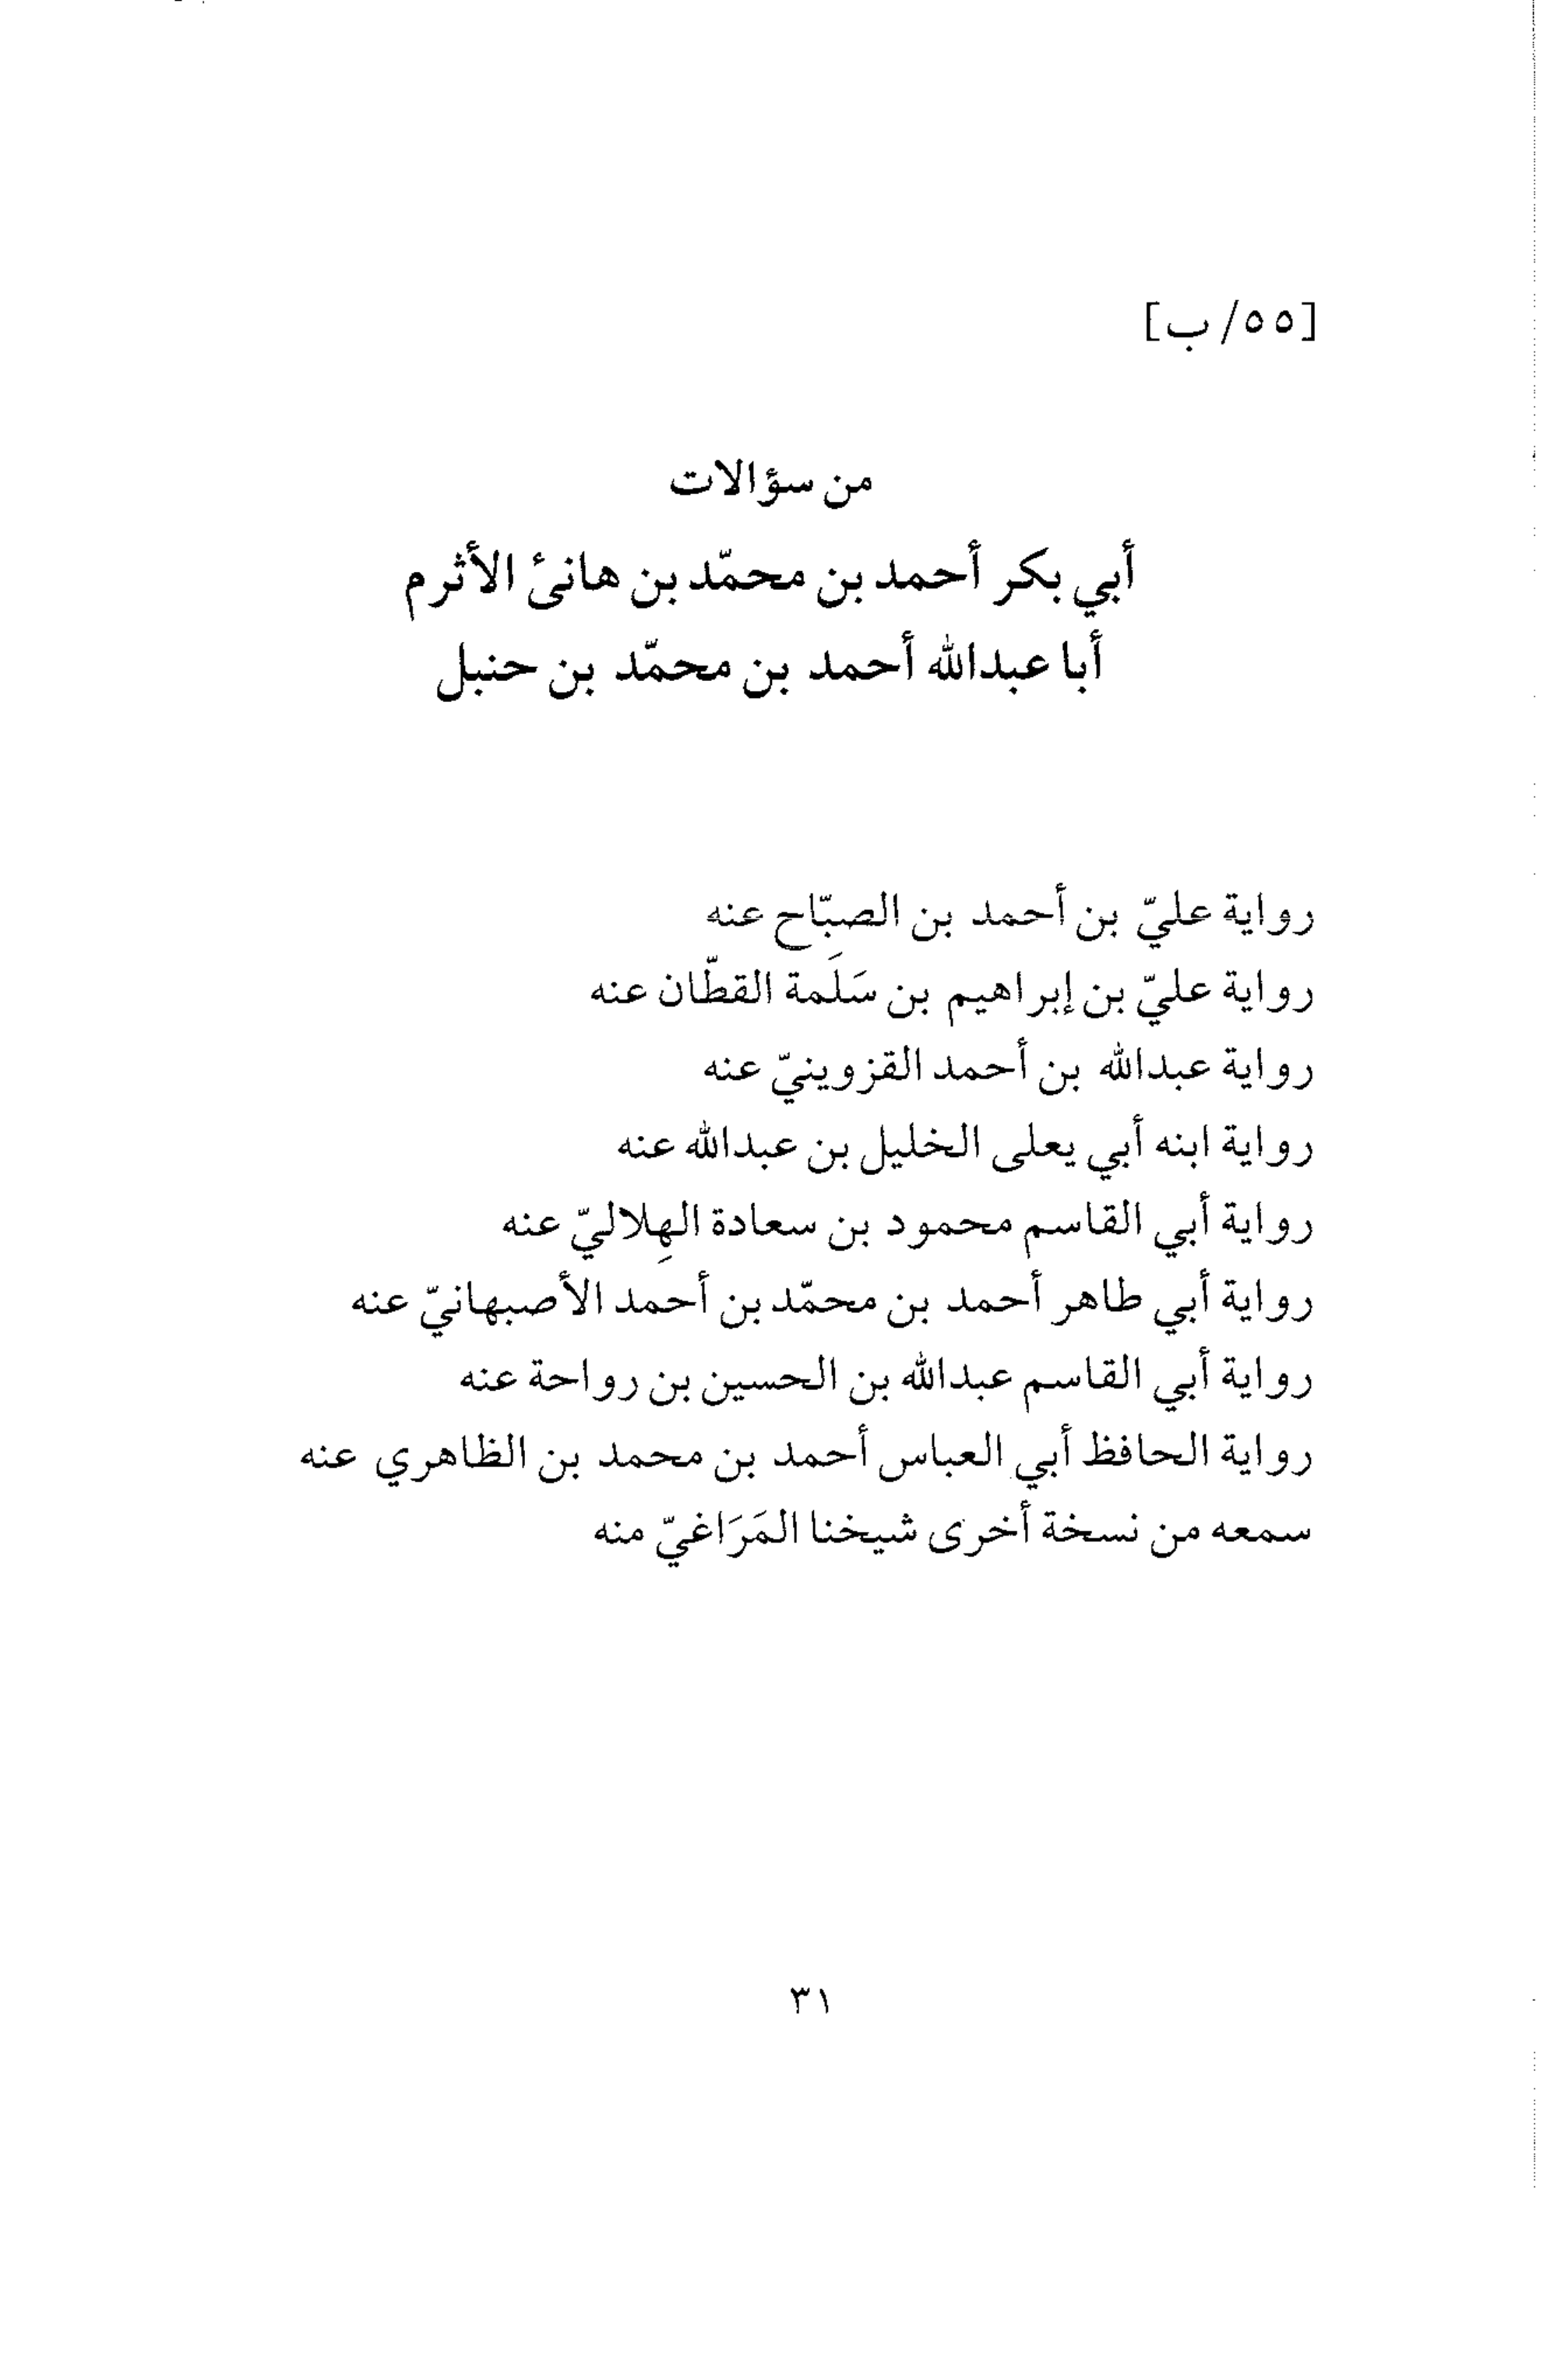 [٥٥/ ب]
من سؤالات
أبي بكر أحمد بن محمّد بن هانئ الأثرم
أبا عبدالله أحمد بن محمّد بن حنبل
رواية عليّ بن أحمد بن الصبّاح عنه
رواية عليّ بن إبراهيم بن سَلَمة القطّان عنه
رواية عبدالله بن أحمد القزوينيّ عنه
رواية ابنه أبي يعلى الخليل بن عبدالله عنه
رواية أبي القاسم محمود بن سعادة الهِلاليّ عنه
رواية أبي طاهر أحمد بن محمّد بن أحمد الأصبهانيّ عنه
رواية أبي القاسم عبدالله بن الحسين بن رواحة عنه
رواية الحافظ أبي العباس أحمد بن محمد بن الظاهري عنه
سمعه من نسخة أخرى شيخنا المَرَاغيّ منه
٣١